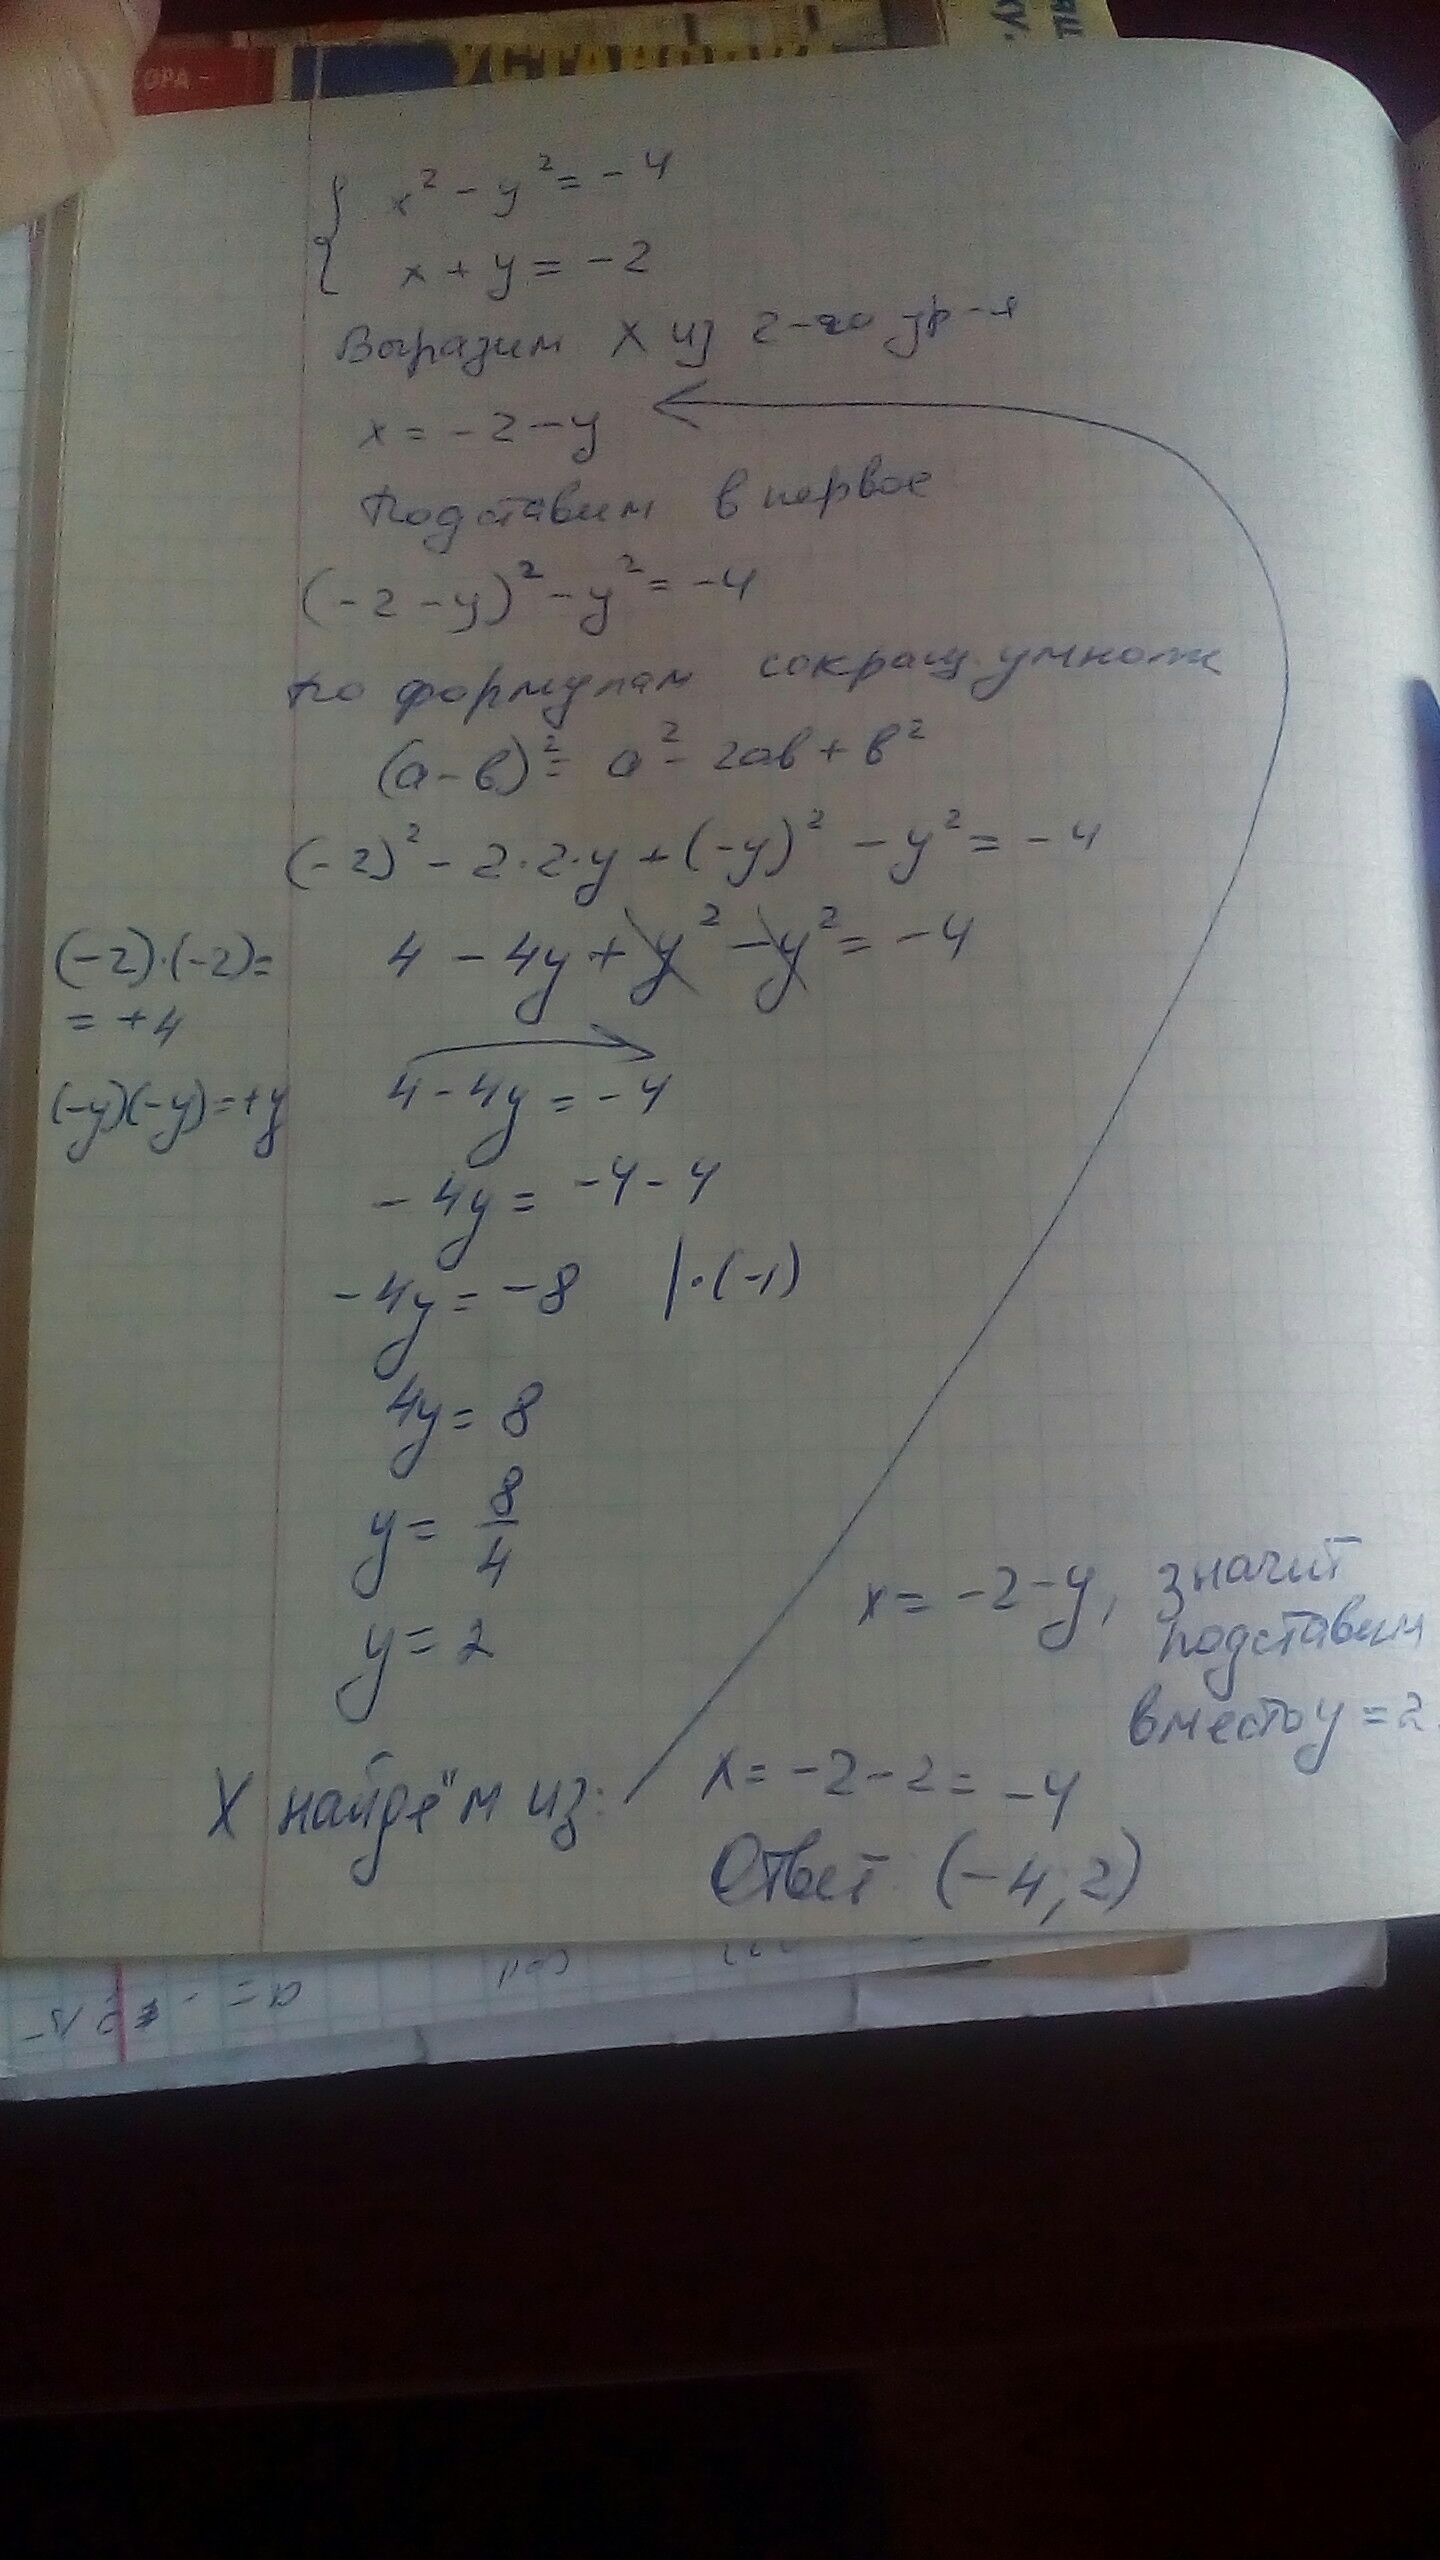 УСТАНОВК
ОРА -
{ x² - y² = -4
x + y = -2
Выразим x из 2-го ур-я
x = -2 - y
Подставим в первое
(-2 - y)² - y² = -4
по формулам сокращ. умнож
(а - в)² = а² - 2ав + в²
(-2)² - 2·2·y + (-y)² - y² = -4
(-2)·(-2)=
= +4
4 - 4y + y² - y² = -4
(-y)(-y)=+y
4 - 4y = -4
-4y = -4 - 4
-4y = -8 |·(-1)
4y = 8
y = 8/4
y = 2
x = -2 - y, значит
подставим
вместо y = 2.
X найдём из:
x = -2 - 2 = -4
Ответ: (-4; 2)